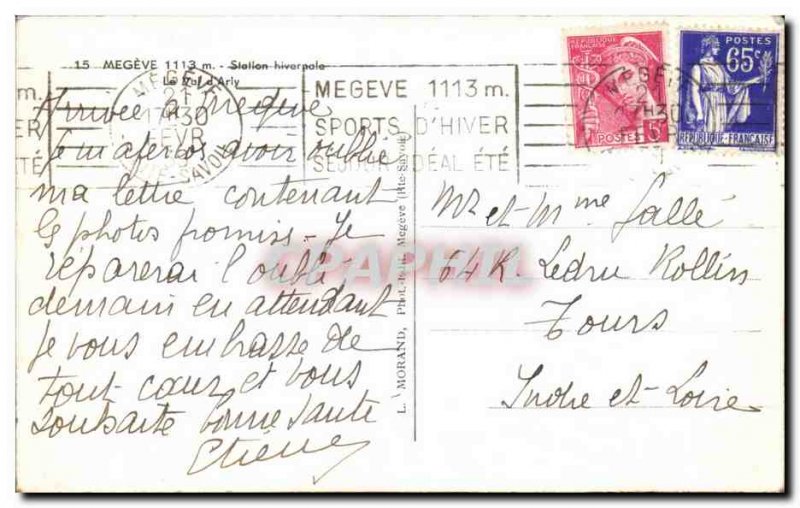 15 MEGÈVE 1113 m. - Station hivernale
Le Val d'Arly
MEGÈVE
21
17H30
FEVR
HTE-SAVOIE
MEGEVE 1113 m.
SPORTS D'HIVER
SEJOUR IDEAL ÉTÉ
m.
ER
ÉTÉ
REPUBLIQUE FRANÇAISE
POSTES 5c
POSTES
65c
REPUBLIQUE-FRANÇAISE
MEGÈVE
Arrivée à Megève
Je m'aperçois avoir oublié
ma lettre contenant
les photos promises - Je
réparerai l'oubli
demain en attendant
je vous embrasse de
tout cœur et vous
souhaite bonne santé
Etienne
L. MORAND, Phot.-Edit. Megève (Hte-Savoie)
CPAPHIL
Mr et Mme Gallé
64 R. Ledru Rollin
Tours
Indre et-Loire